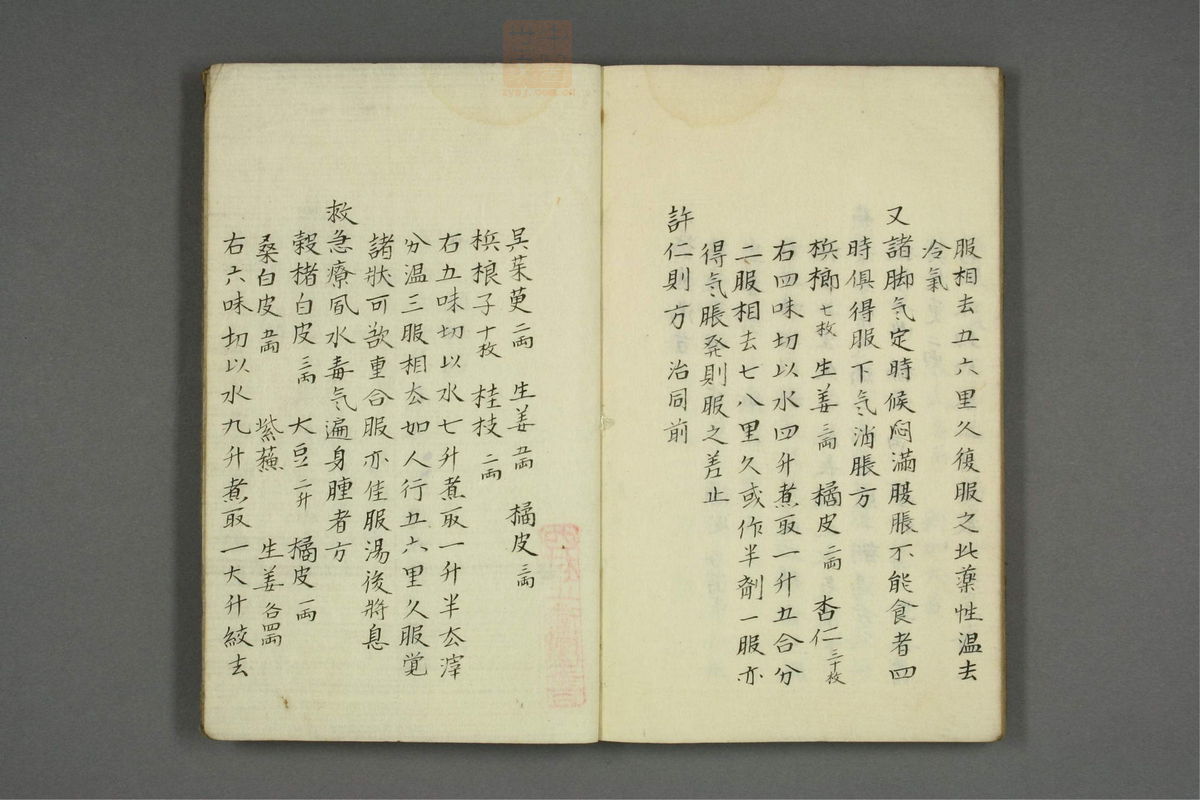 服相去五六里久復服之此藥性温去
冷氣
又諸脚气定時候悶滿腹脹不能食者四
時俱得服下气消脹方
檳榔七枚 生姜三両 橘皮二両 杏仁三十枚
右四味切以水四升煮取一升五合分
二服相去七八里久或作半劑一服亦
得气脹発則服之差止
許仁則方 治同前
吴茱萸二両 生姜五両 橘皮三両
梹榔子十枚 桂枝二両
右五味切以水七升煮取一升半去滓
分温三服相去如人行五六里久服覚
諸状可欲重合服亦佳服湯後將息
救急療風水毒气遍身腫者方
穀楮白皮三両 大豆二升 橘皮一両
桑白皮五両 紫蘇 生姜各四両
右六味切以水九升煮取一大升絞去